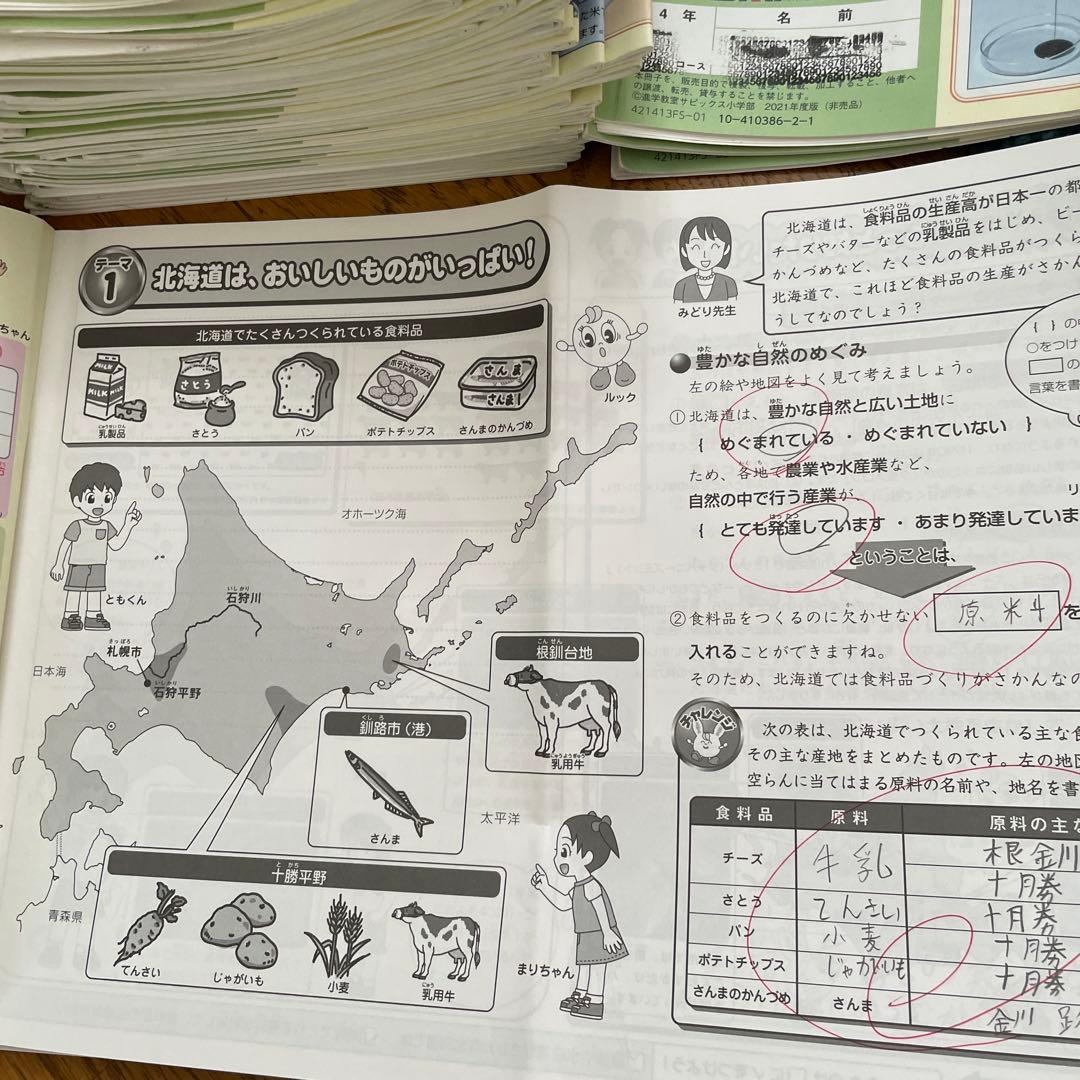 た米
ます。
4 年
名 前
コース
本冊子を、販売目的で複製、複写、転載、加工すること、他者へ
の譲渡、転売、貸与することを禁じます。
©進学教室サピックス小学部 2021年度版(非売品)
421413FS-01 10-410386-2-1
421413FS-
ちゃん
テーマ
1
北海道は、おいしいものがいっぱい!
北海道でたくさんつくられている食料品
MILK MILK
さとう
ポテトチップス
さんま
さんま
にゅうせいひん
乳製品
さとう
パン
ポテトチップス
さんまのかんづめ
ルック
ともくん
オホーツク海
いしかり
石狩川
さっぽろ
札幌市
日本海
いしかり
石狩平野
こんせん
根釧台地
にゅうようぎゅう
乳用牛
くしろ
釧路市(港)
さんま
太平洋
青森県
とかち
十勝平野
てんさい
じゃがいも
小麦
にゅう
乳用牛
まりちゃん
みどり先生
しょくりょうひん せいさんだか
北海道は、食料品の生産高が日本一の都
にゅうせいひん
チーズやバターなどの乳製品をはじめ、ビー
かんづめなど、たくさんの食料品がつくら
北海道で、これほど食料品の生産がさかん
うしてなのでしょう?
ゆた しぜん
●豊かな自然のめぐみ
左の絵や地図をよく見て考えましょう。
{ }の
○をつけ
の
言葉を書
ゆた
①北海道は、豊かな自然と広い土地に
{ めぐまれている ・ めぐまれていない }
かくち
ため、各地で農業や水産業など、
自然の中で行う産業が、
はったつ
{ とても発達しています ・ あまり発達していま
ということは、
か
②食料品をつくるのに欠かせない 原料 を
入れることができますね。
そのため、北海道では食料品づくりがさかんなの
チャレンジ
次の表は、北海道でつくられている主な食
その主な産地をまとめたものです。左の地図
空らんに当てはまる原料の名前や、地名を書
食料品 原料 原料の主な
チーズ 牛乳 根釧
十勝
さとう てんさい 十勝
パン 小麦 十勝
ポテトチップス じゃがいも 十勝
さんまのかんづめ さんま 釧路